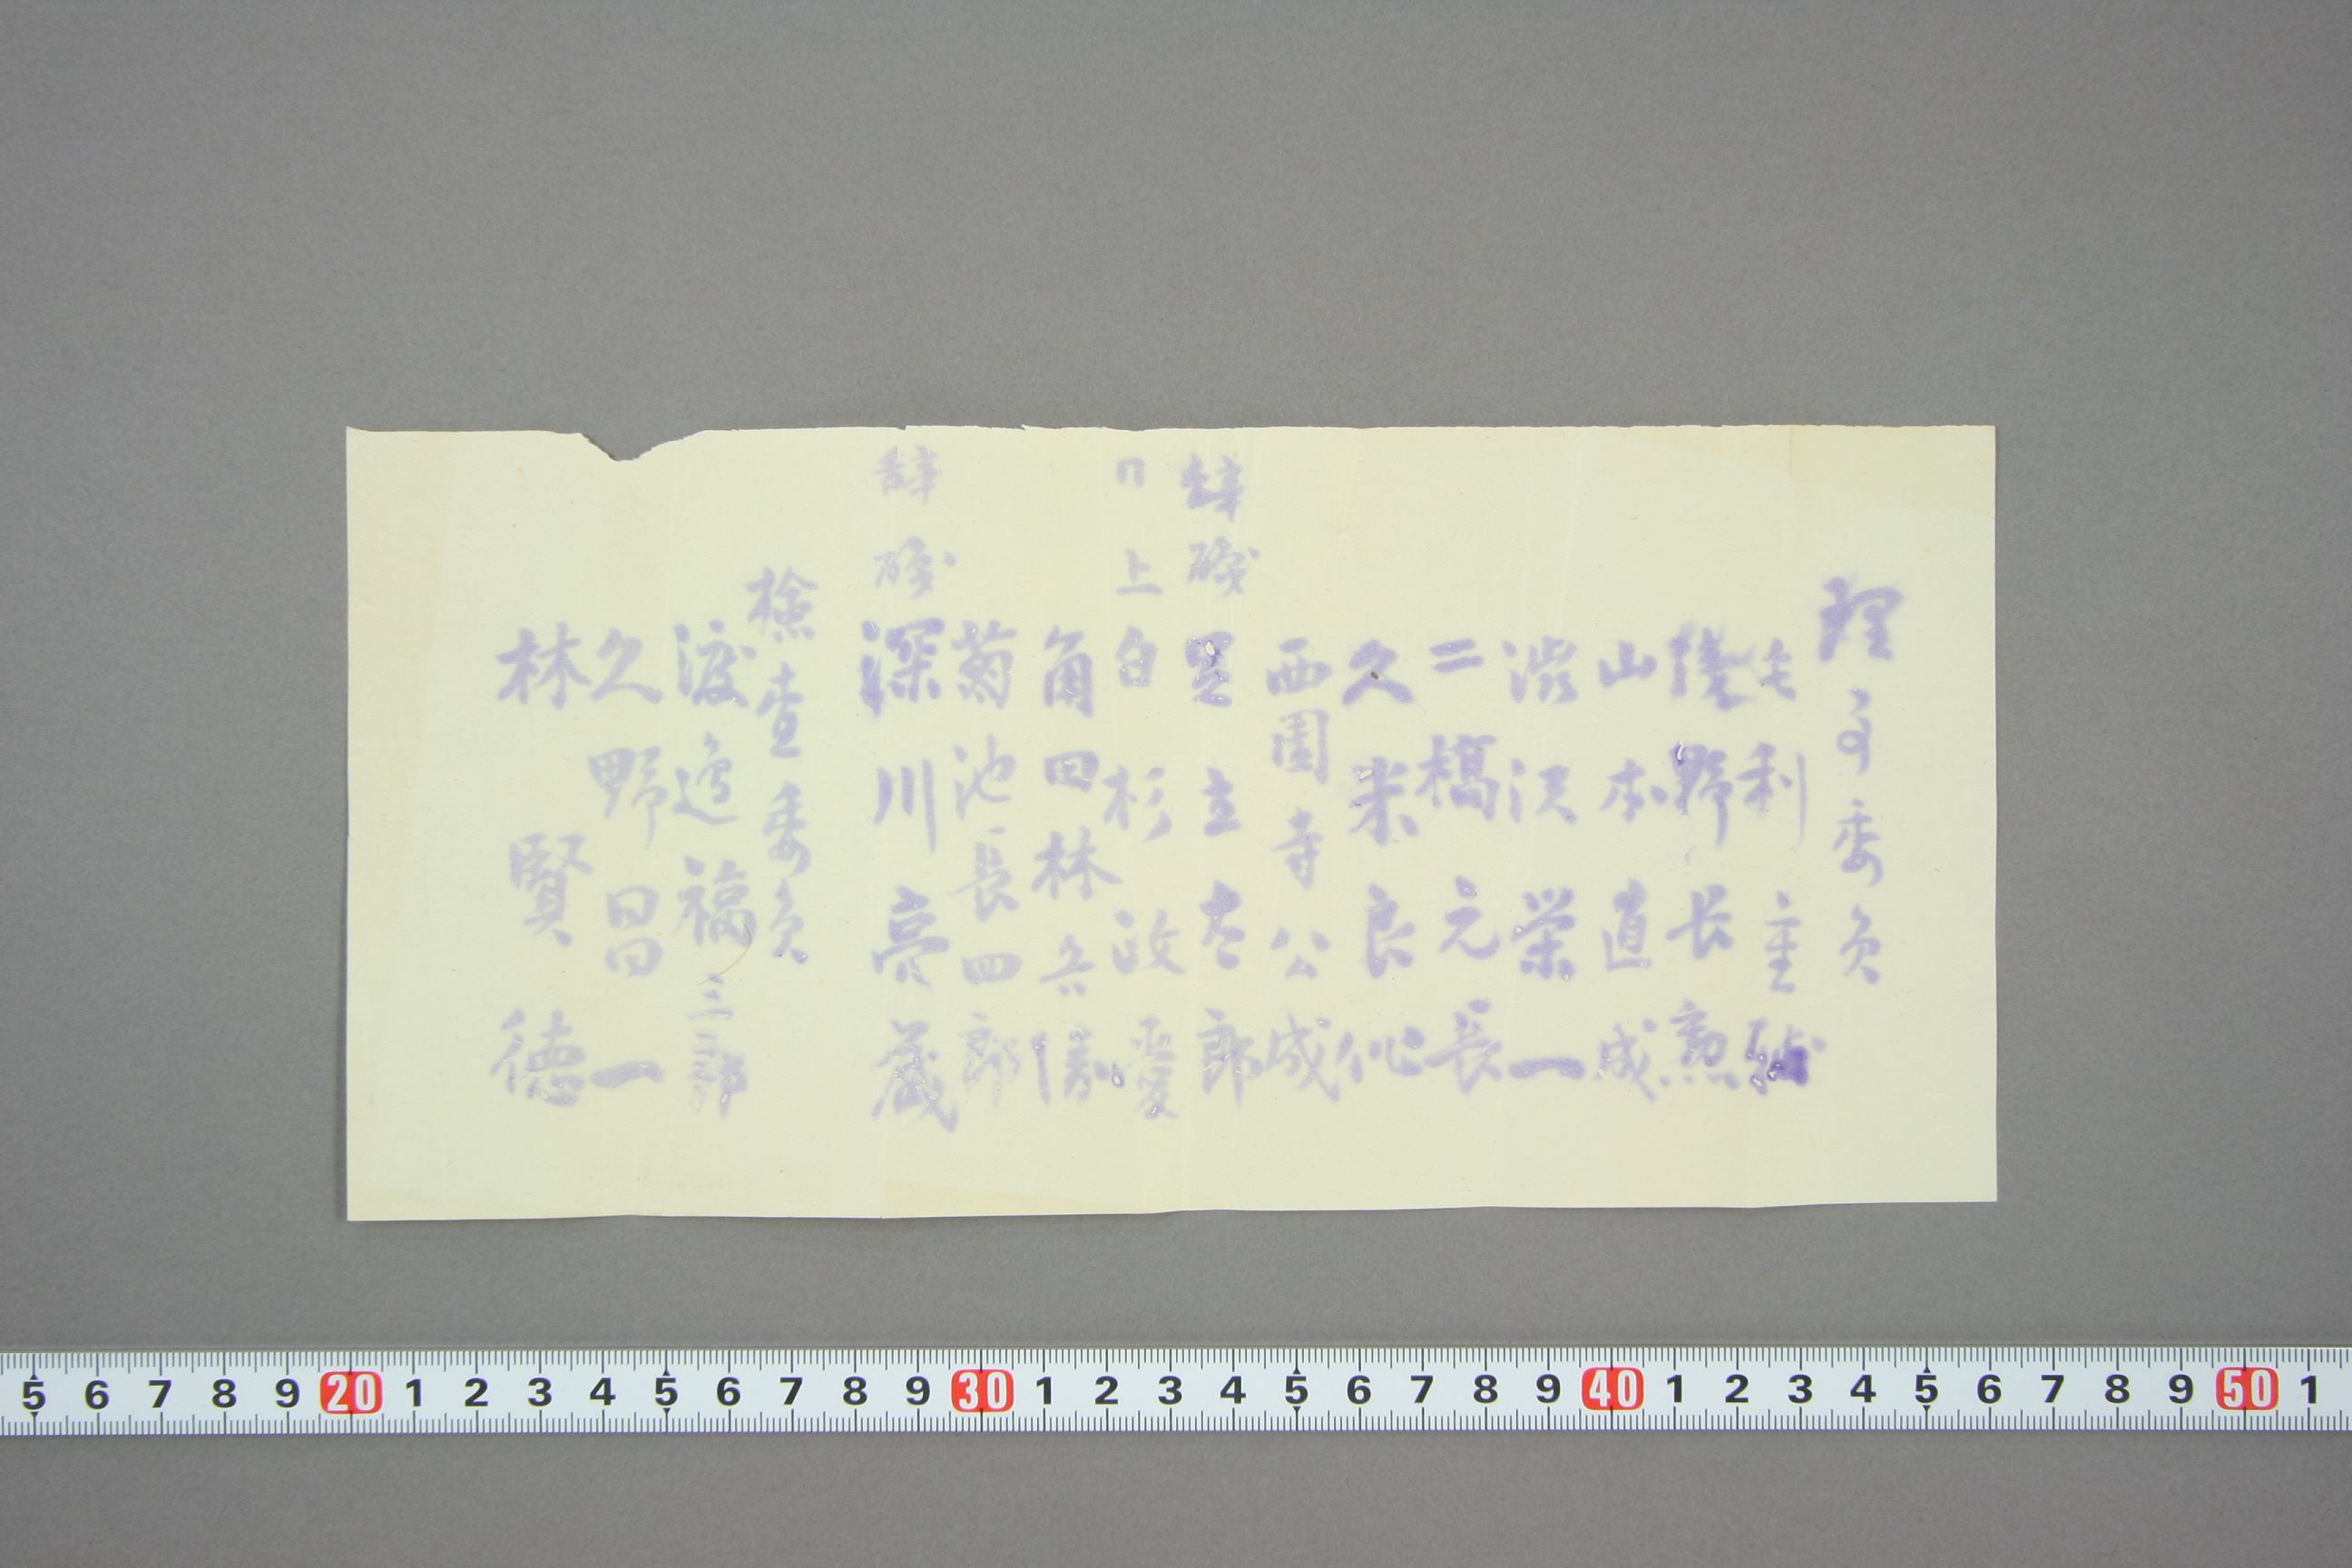 理事委員
毛利重輔
淺野长勲
山本直成
渋沢栄一
二橋元長
久米良作
西園寺公成
辞職 足立太郎
冂上 白杉政愛
角田林兵衛
菊池長四郎
辞職 深川亮蔵
検査委員
渡邉福三郎
久野昌一
林賢徳
5 6 7 8 9 20 1 2 3 4 5 6 7 8 9 30 1 2 3 4 5 6 7 8 9 40 1 2 3 4 5 6 7 8 9 50 1